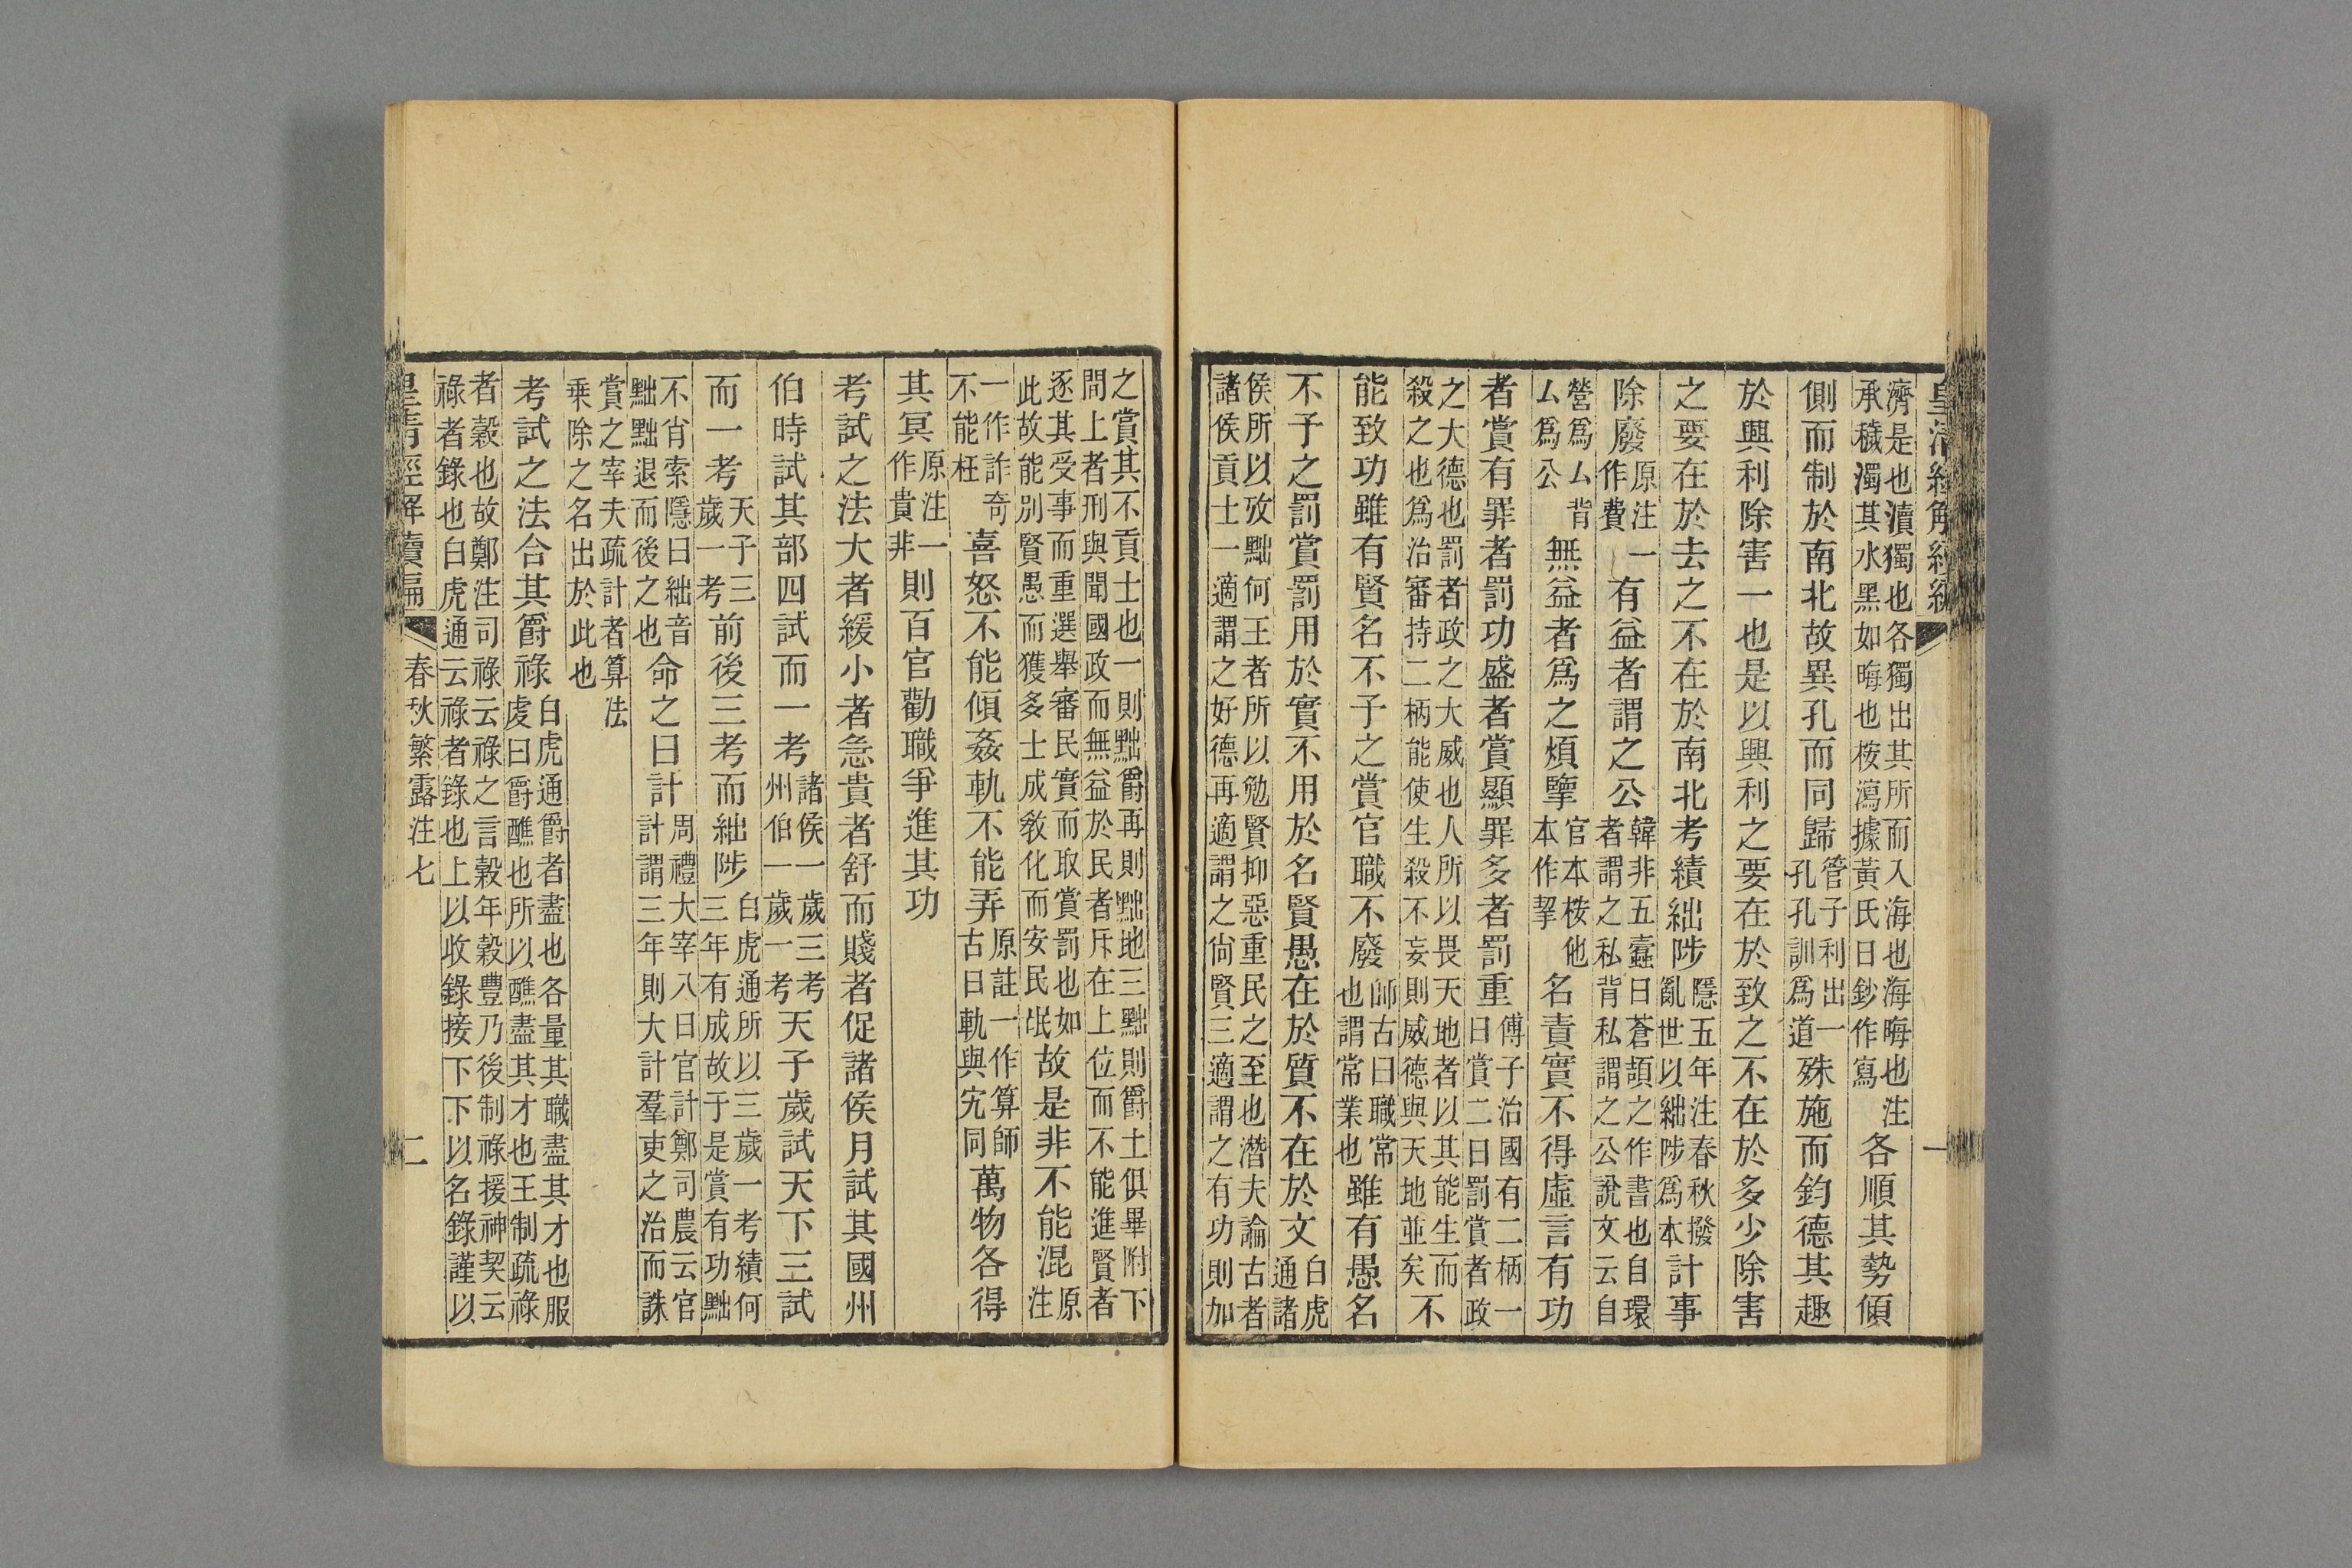 皇清經解續編 一
濟是也瀆獨也各獨出其所而入海也海晦也注承穢濁其水黑如晦也桉瀉據黃氏日鈔作寫各順其勢傾
側而制於南北故異孔而同歸管子利出一孔孔訓爲道殊施而鈞德其趣
於興利除害一也是以興利之要在於致之不在於多少除害
之要在於去之不在於南北考績絀陟隱五年注春秋撥亂世以絀陟爲本計事
除廢原注一作費有益者謂之公韓非五蠹曰蒼頡之作書也自環者謂之私背私謂之公說文云自
營爲厶背厶爲公無益者爲之煩擥官本桉他本作挐名責實不得虛言有功
者賞有罪者罰功盛者賞顯罪多者罰重傅子治國有二柄一曰賞二曰罰賞者政
之大德也罰者政之大威也人所以畏天地者以其能生而殺之也爲治審持二柄能使生殺不妄則威德與天地並矣不
能致功雖有賢名不予之賞官職不廢師古曰職常也謂常業也雖有愚名
不予之罰賞罰用於實不用於名賢愚在於質不在於文白虎通諸
侯所以攷黜何王者所以勉賢抑惡重民之至也潛夫論古者諸侯貢士一適謂之好德再適謂之尙賢三適謂之有功則加
之賞其不貢士也一則黜爵再則黜地三黜則爵土俱畢附下問上者刑與聞國政而無益於民者斥在上位而不能進賢者
逐其受事而重選舉審民實而取賞罰也如此故能別賢愚而獲多士成教化而安民氓故是非不能混原注
一作詐奇不能枉喜怒不能傾姦軌不能弄原註一作算師古曰軌與宄同萬物各得
其冥原注一作貴非則百官勸職爭進其功
考試之法大者緩小者急貴者舒而賤者促諸侯月試其國州
伯時試其部四試而一考諸侯一歲三考州伯一歲一考天子歲試天下三試
而一考天子三歲一考前後三考而絀陟白虎通所以三歲一考績何三年有成故于是賞有功黜
不肖索隱曰絀音黜黜退而後之也命之曰計周禮大宰八曰官計鄭司農云官計謂三年則大計羣吏之治而誅
賞之宰夫疏計者算法乘除之名出於此也
考試之法合其爵祿白虎通爵者盡也各量其職盡其才也服虔曰爵醮也所以醮盡其才也王制疏祿
者穀也故鄭注司祿云祿之言穀年穀豐乃後制祿援神契云祿者錄也白虎通云祿者錄也上以收錄接下下以名錄謹以
皇清經解續編 春秋繁露注七 二